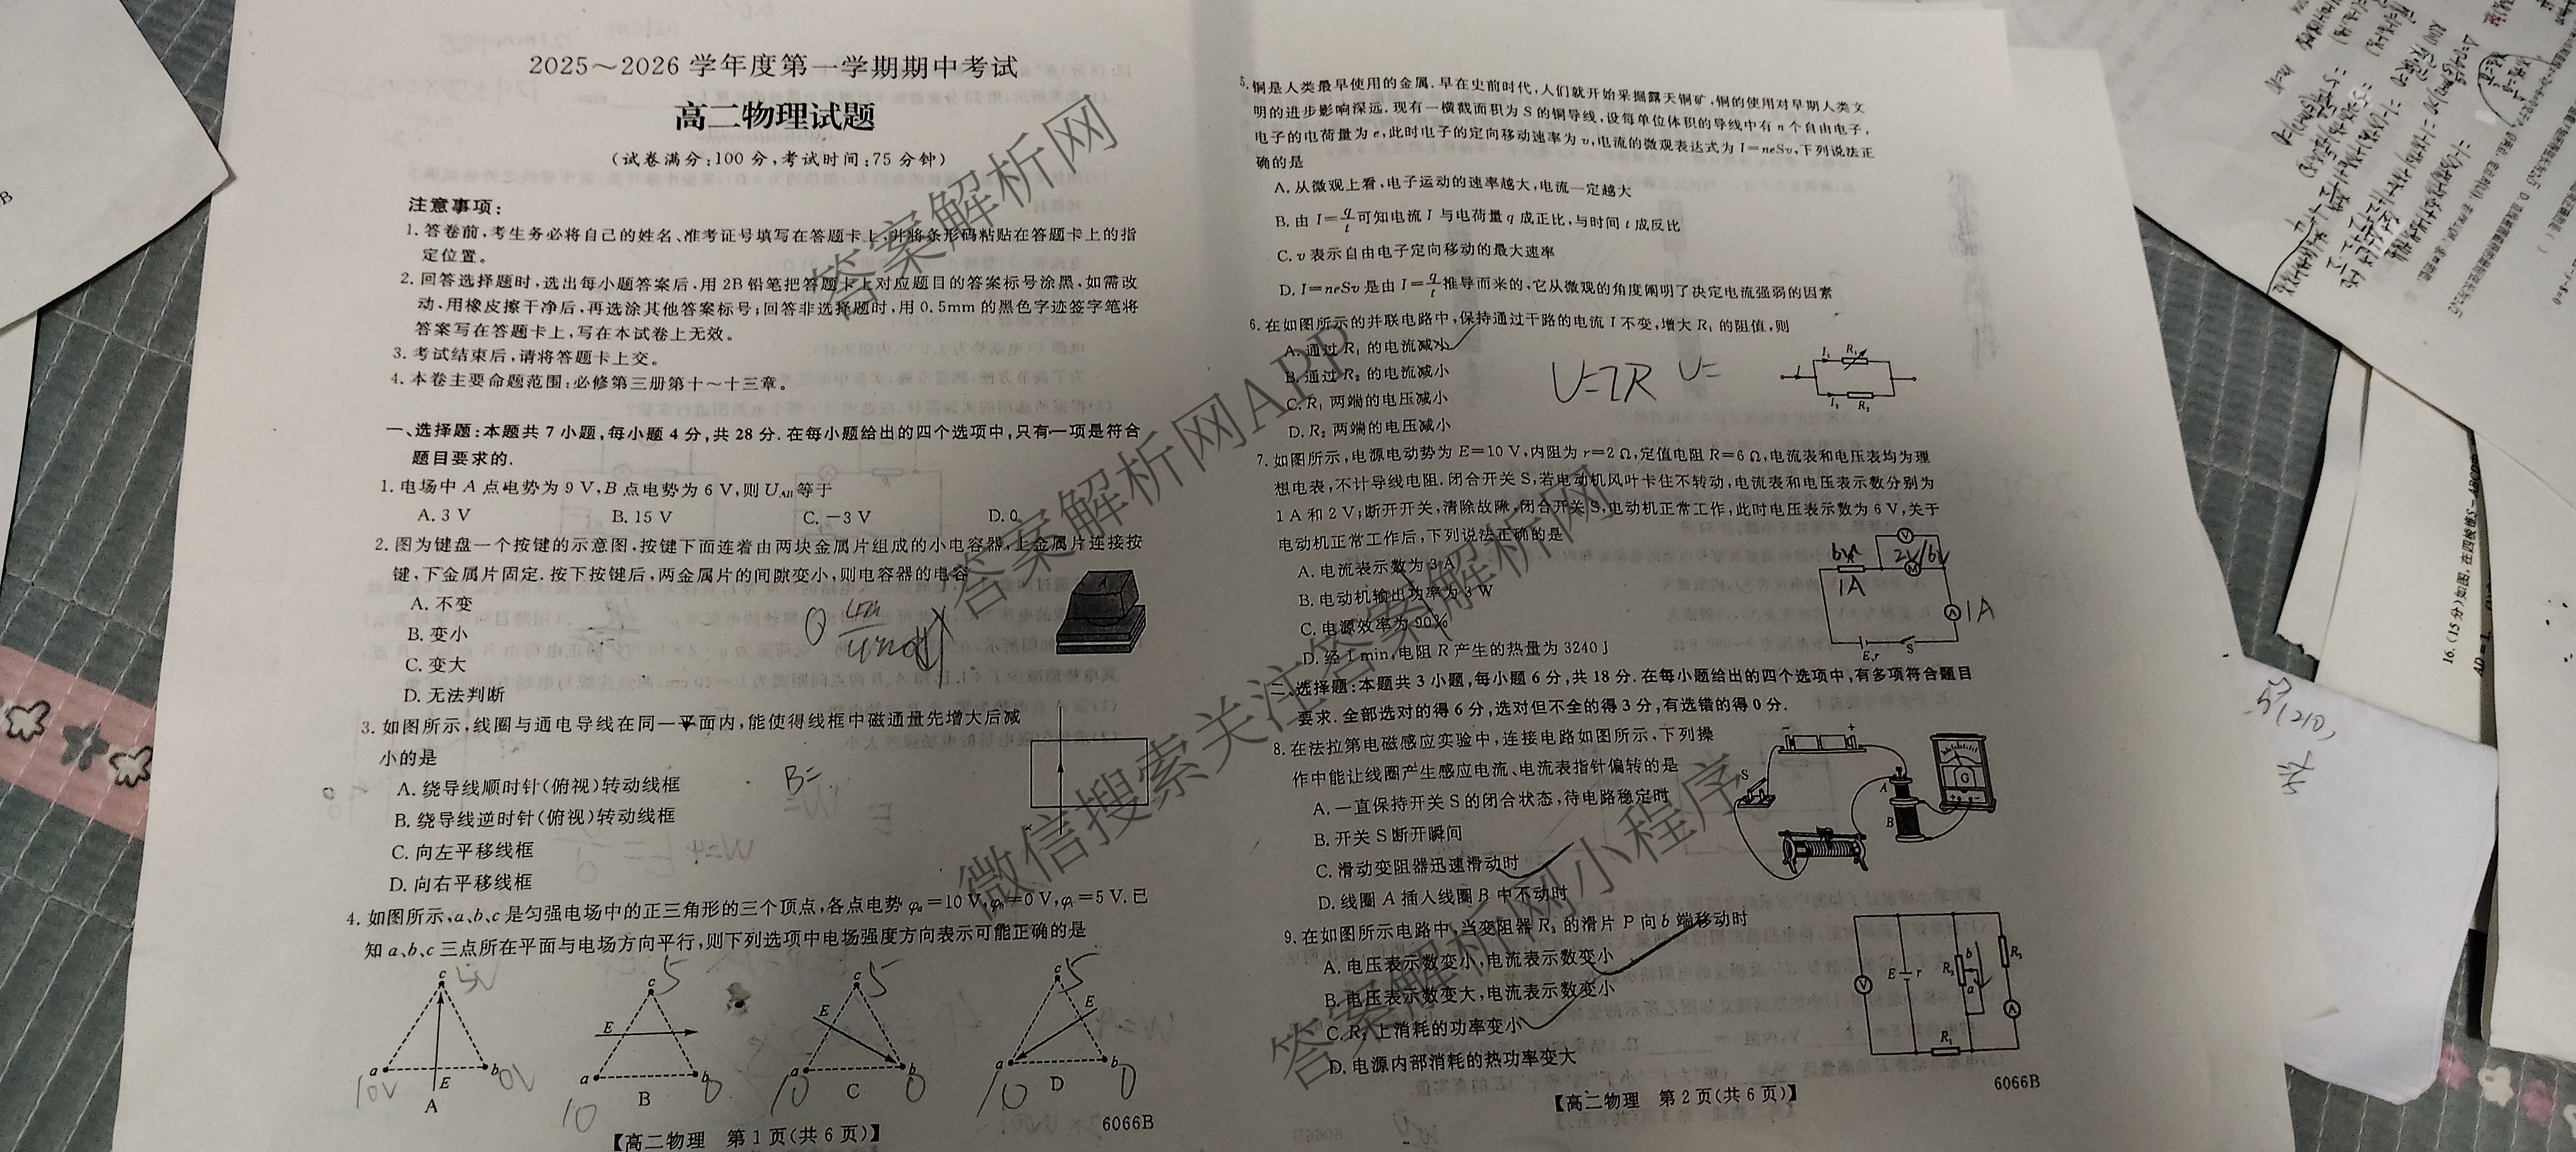 2025～2026学年度第一学期期中考试
高二物理试题
(试卷满分:100分,考试时间:75分钟)
注意事项:
1.答卷前,考生务必将自己的姓名、准考证号填写在答题卡上,并将条形码粘贴在答题卡上的指
定位置。
2.回答选择题时,选出每小题答案后,用2B铅笔把答题卡上对应题目的答案标号涂黑,如需改
动,用橡皮擦干净后,再选涂其他答案标号;回答非选择题时,用0.5mm的黑色字迹签字笔将
答案写在答题卡上,写在本试卷上无效。
3.考试结束后,请将答题卡上交。
4.本卷主要命题范围:必修第三册第十～十三章。
一、选择题:本题共7小题,每小题4分,共28分.在每小题给出的四个选项中,只有一项是符合
题目要求的.
1.电场中A点电势为9 V,B点电势为6 V,则U_AB等于
A.3 V B.15 V C.-3 V D.0
2.图为键盘一个按键的示意图,按键下面连着由两块金属片组成的小电容器,上金属片连接按
键,下金属片固定.按下按键后,两金属片的间隙变小,则电容器的电容
A.不变
B.变小
C.变大
D.无法判断
3.如图所示,线圈与通电导线在同一平面内,能使得线框中磁通量先增大后减
小的是
B=
A.绕导线顺时针(俯视)转动线框
B.绕导线逆时针(俯视)转动线框
C.向左平移线框
D.向右平移线框
4.如图所示,a、b、c是匀强电场中的正三角形的三个顶点,各点电势φa=10 V,φb=0 V,φc=5 V.已
知a、b、c三点所在平面与电场方向平行,则下列选项中电场强度方向表示可能正确的是
c 5V a 10V b 0V E A
c 5 a 10 b 0 E B
c 5 a 10 b 0 E C
c 5 a 10 b 0 E D
6066B
【高二物理 第1页(共6页)】
5.铜是人类最早使用的金属.早在史前时代,人们就开始采掘露天铜矿,铜的使用对早期人类文
明的进步影响深远.现有一横截面积为S的铜导线,设每单位体积的导线中有n个自由电子,
电子的电荷量为e,此时电子的定向移动速率为v,电流的微观表达式为I=neSv,下列说法正
确的是
A.从微观上看,电子运动的速率越大,电流一定越大
B.由I=q/t可知电流I与电荷量q成正比,与时间t成反比
C.v表示自由电子定向移动的最大速率
D.I=neSv是由I=q/t推导而来的,它从微观的角度阐明了决定电流强弱的因素
6.在如图所示的并联电路中,保持通过干路的电流I不变,增大R₁的阻值,则
A.通过R₁的电流减小
B.通过R₂的电流减小
C.R₁两端的电压减小
D.R₂两端的电压减小
U=IR U=
I I₁ R₁ I₂ R₂
7.如图所示,电源电动势为E=10 V,内阻为r=2 Ω,定值电阻R=6 Ω,电流表和电压表均为理
想电表,不计导线电阻.闭合开关S,若电动机风叶卡住不转动,电流表和电压表示数分别为
1 A和2 V;断开开关,清除故障,闭合开关S,电动机正常工作,此时电压表示数为6 V,关于
电动机正常工作后,下列说法正确的是
A.电流表示数为3 A
B.电动机输出功率为3 W
C.电源效率为90%
D.经1 min,电阻R产生的热量为3240 J
V 2V/6V M 1A A 1A E,r S
二、选择题:本题共3小题,每小题6分,共18分.在每小题给出的四个选项中,有多项符合题目
要求.全部选对的得6分,选对但不全的得3分,有选错的得0分.
8.在法拉第电磁感应实验中,连接电路如图所示,下列操
作中能让线圈产生感应电流、电流表指针偏转的是
A.一直保持开关S的闭合状态,待电路稳定时
B.开关S断开瞬间
C.滑动变阻器迅速滑动时
D.线圈A插入线圈B中不动时
S A B G
9.在如图所示电路中,当变阻器R₃的滑片P向b端移动时
A.电压表示数变小,电流表示数变小
B.电压表示数变大,电流表示数变小
C.R₂上消耗的功率变小
D.电源内部消耗的热功率变大
V E r b a R₁ A
6066B
【高二物理 第2页(共6页)】
答案解析网
答案解析网APP
微信搜索关注答案解析网
答案解析网小程序
16.(15分)如图,在四棱锥S-ABCD